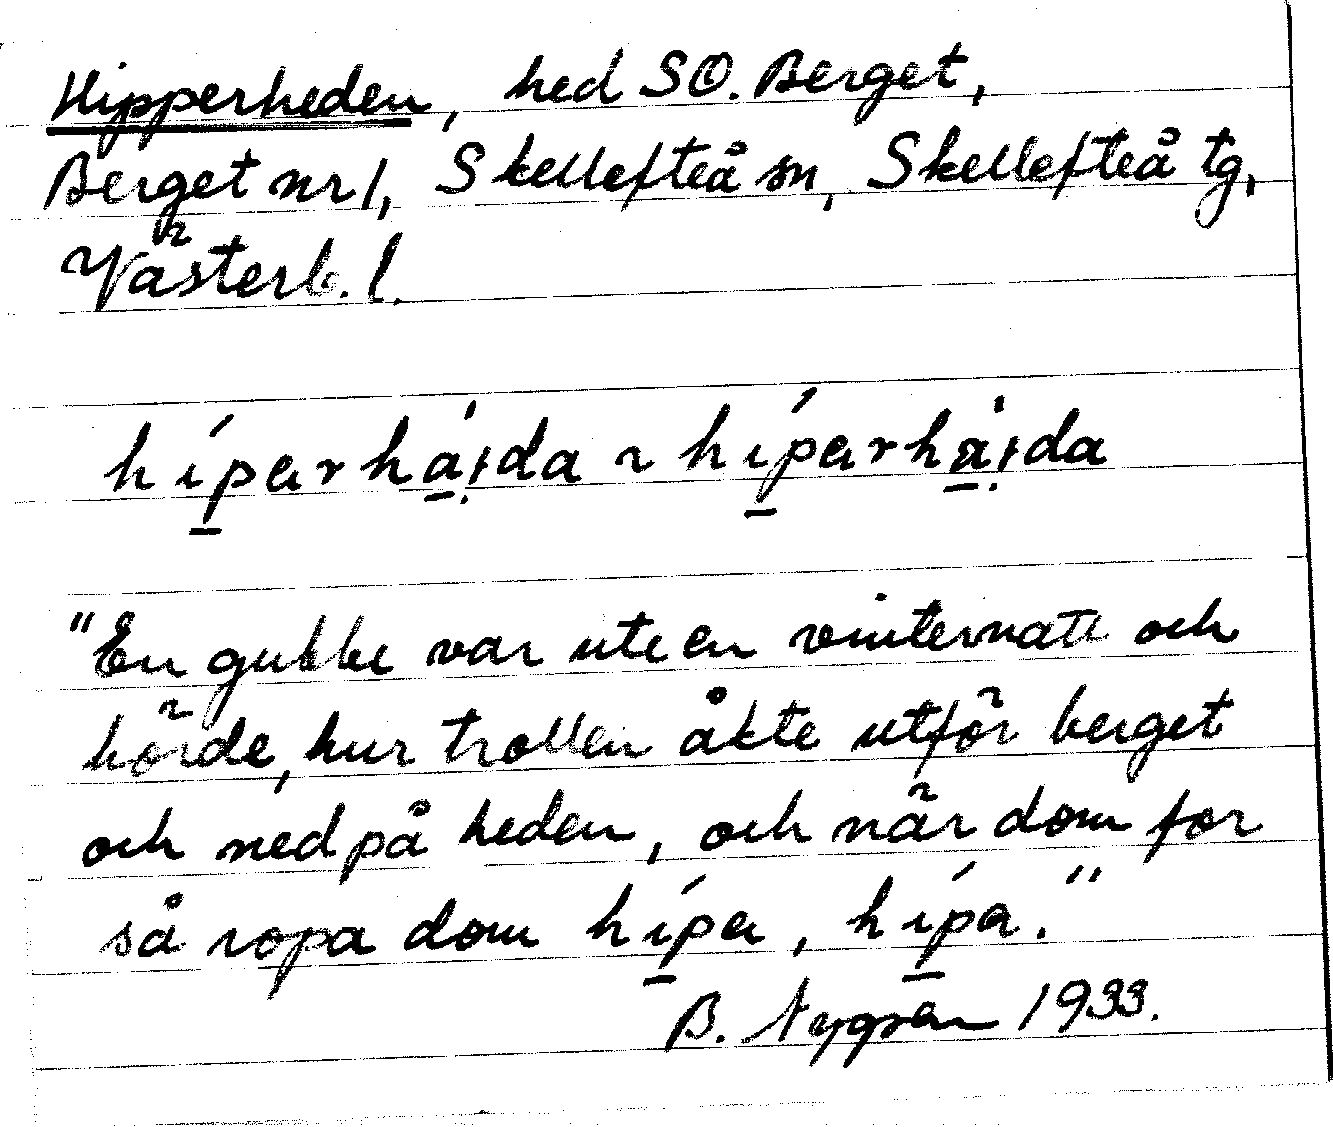 Hipperheden, hed SO. Berget,
Berget nr 1, Skellefteå sn, Skellefteå tg,
Västerb. l.
híparhąida ~ híparhąida
"En gubbe var ute en vinternatt och
hörde, hur trollen åkte utför berget
och ned på heden, och når dom for
så ropa dom hípa, hípa."
B. Nygren 1933.